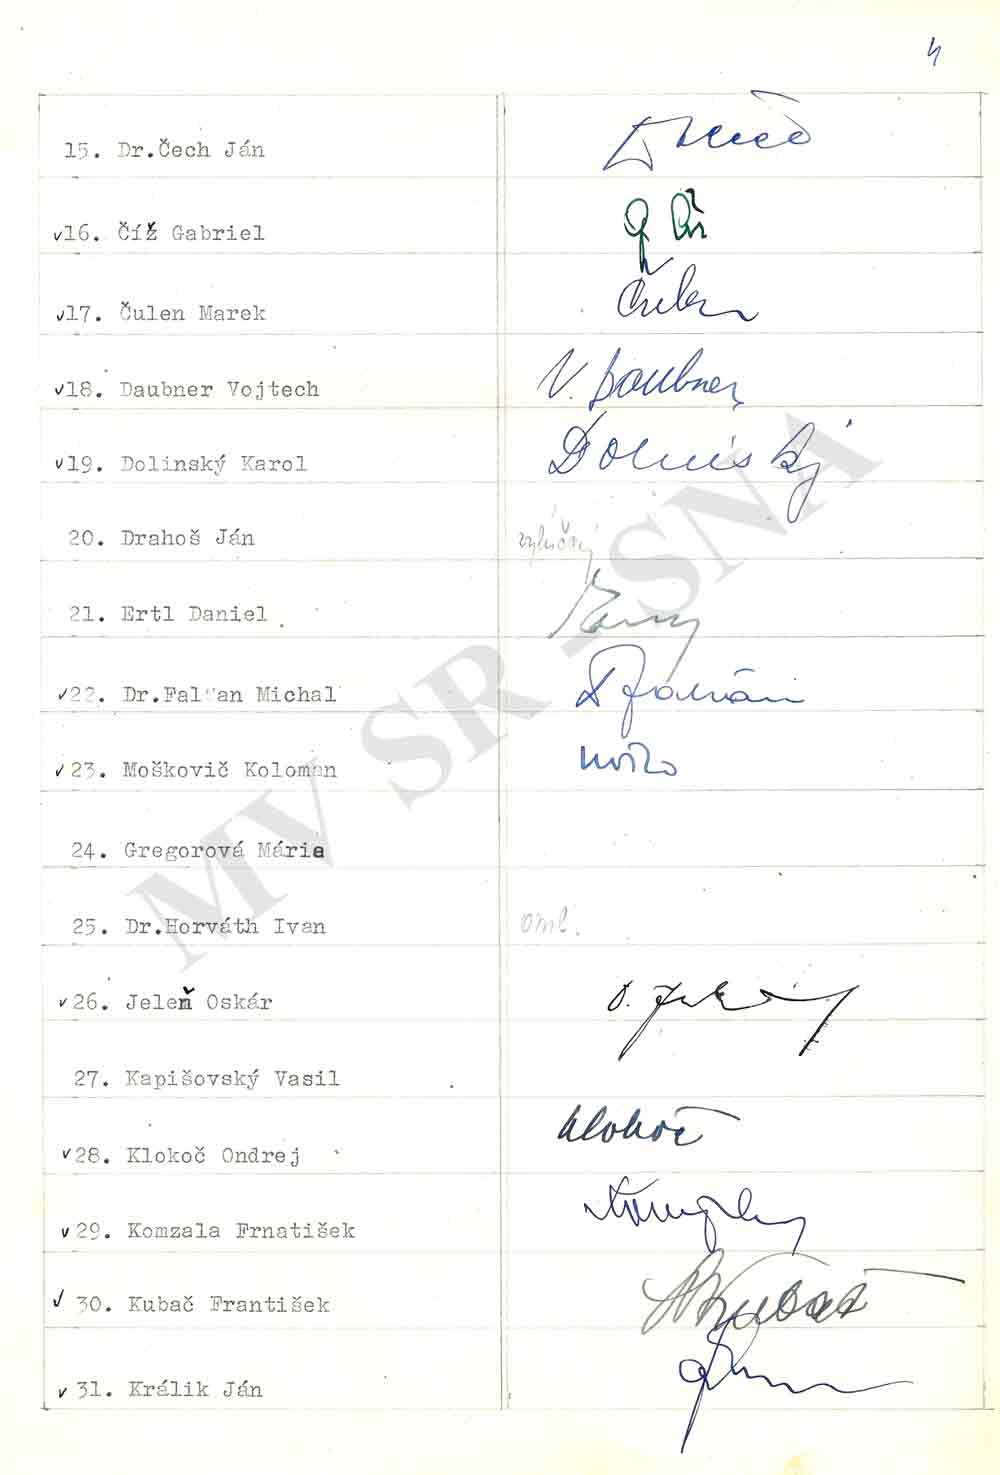 4
15. Dr.Čech Ján
✓16. Číž Gabriel
✓17. Čulen Marek Čulen
✓18. Daubner Vojtech V. Daubner
✓19. Dolinský Karol Dolinský
20. Drahoš Ján
21. Ertl Daniel
✓22. Dr.Fal an Michal
✓23. Moškovič Koloman
24. Gregorová Mária
25. Dr.Horváth Ivan oml.
✓26. Jeleň Oskár
27. Kapišovský Vasil
✓28. Klokoč Ondrej Klokoč
✓29. Komzala Frnatišek
✓30. Kubač František Kubač
✓31. Králik Ján
MV SR - SNA